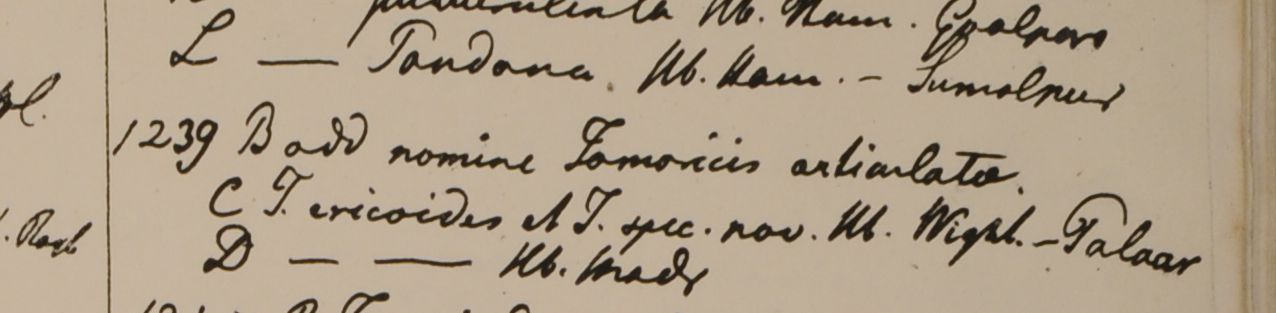 purulenta Hb. Ham. Goalpara
L — Tondona. Hb. Ham. – Sumolpur
Rl.
1239 B add nomine Tamaricis articulatae.
C T. ericoides et T. spec. nov. Hb. Wight. – Palaar
. Roxb
D — — Hb. Madr